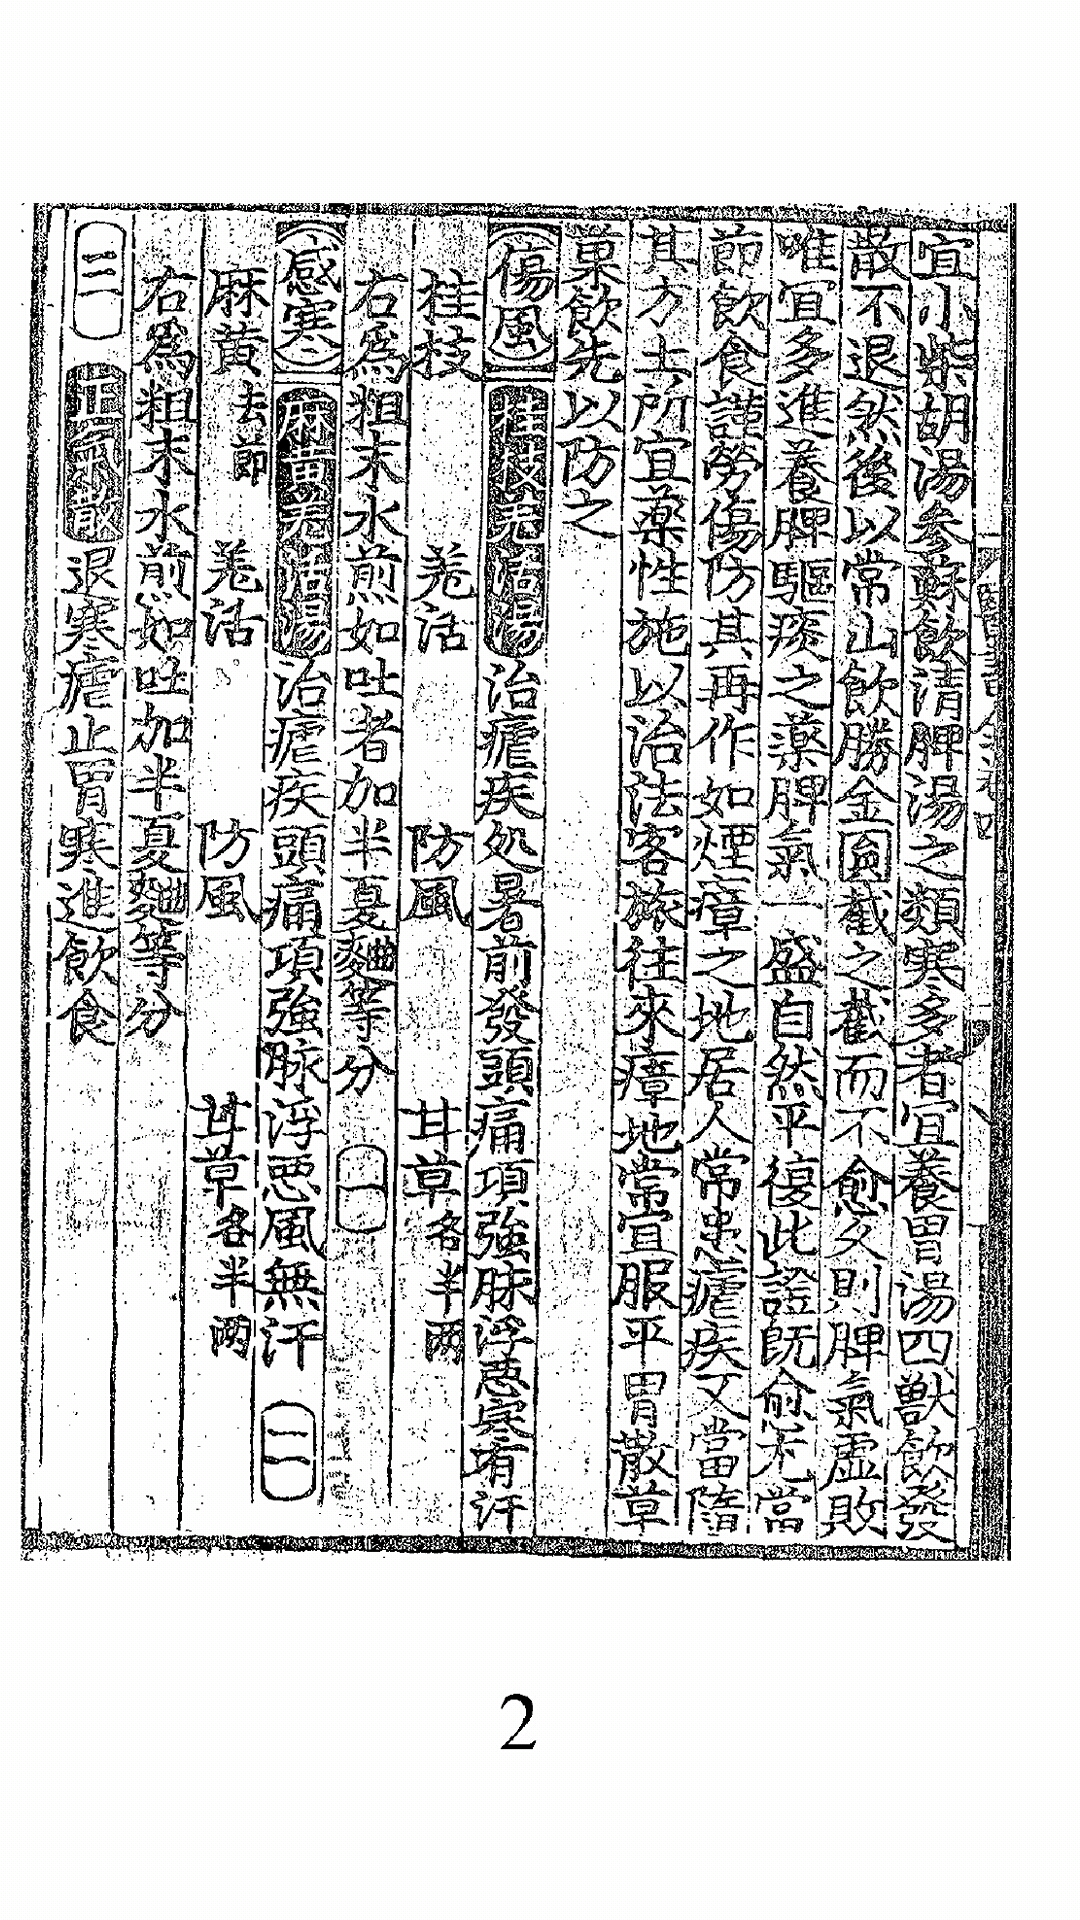 宜小柴胡湯参蘇飲清脾湯之類寒多者宜養胃湯四獸飲發
散不退然後以常山飲勝金圎截之截而不愈久則脾氣虛敗
唯宜多進養脾驅痰之藥脾氣一盛自然平復此證既俞尤當
節飲食謹勞傷防其再作如煙瘴之地居人常患瘧疾又當隨
其方土所宜藥性施以治法客旅往來瘴地常宜服平胃散草
菓飲先以防之
傷風 桂枝羌活湯 治瘧疾処暑前發頭痛項強脉浮惡寒有汗
桂枝 羌活 防風 甘草各半两
右為粗末水煎如吐者加半夏麯等分 一
感寒 麻黄羌活湯 治瘧疾頭痛項強脉浮惡風無汗 二
麻黄去節 羌活 防風 甘草各半两
右為粗末水煎如吐加半夏麯等分
三 正氣散 退寒瘧止胃寒進飲食
2